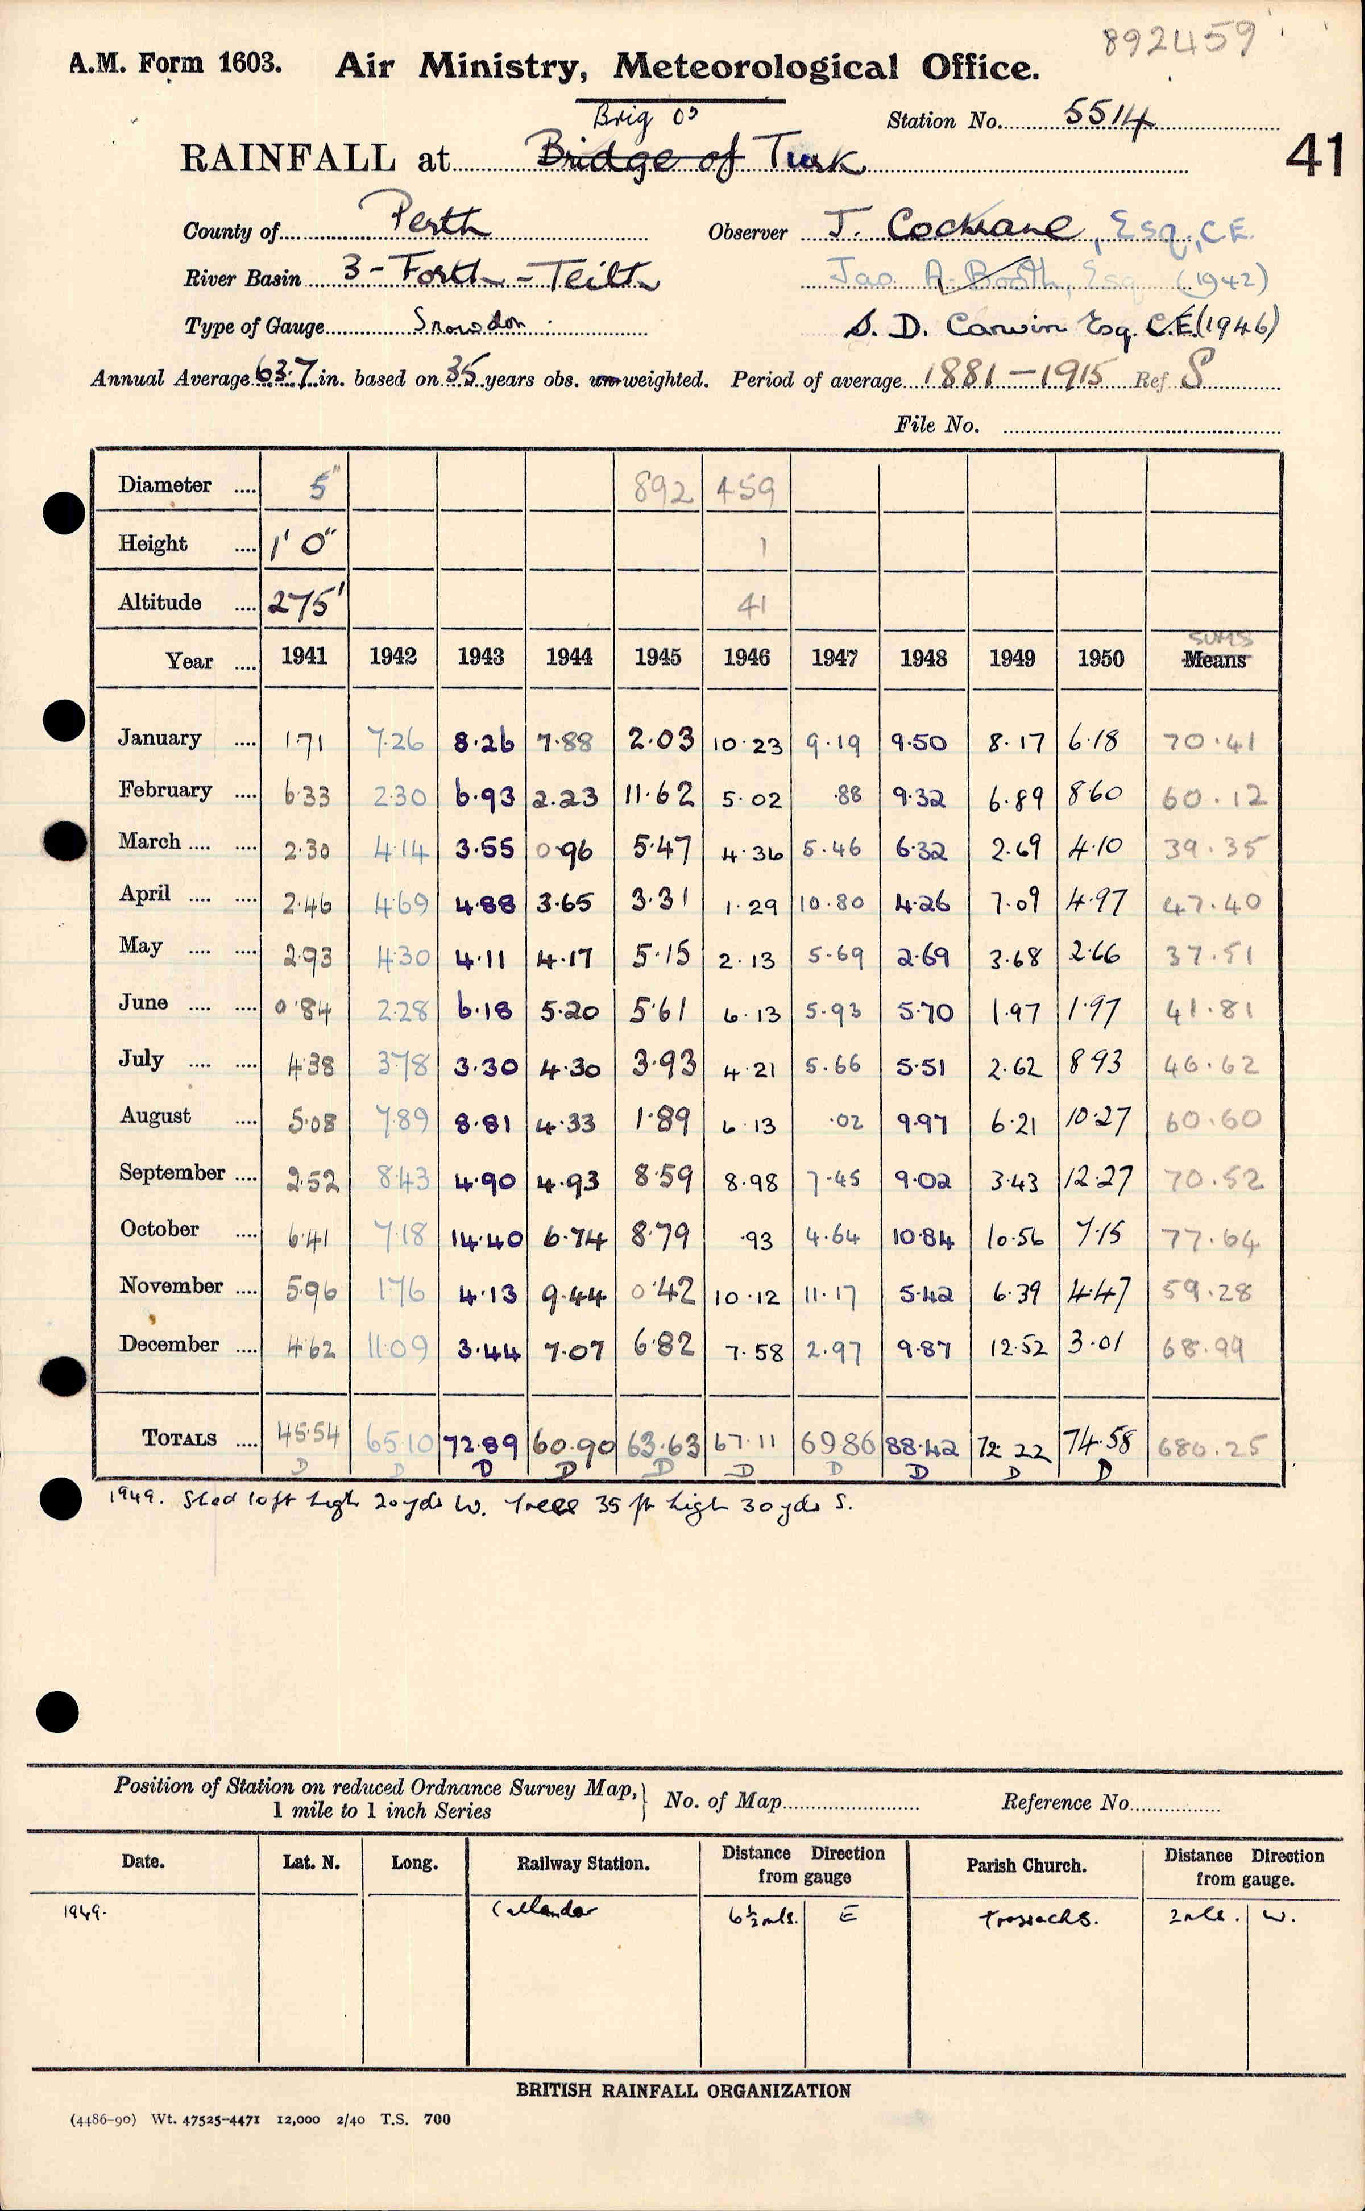 892459
A.M. Form 1603. Air Ministry, Meteorological Office.
Brig O'
Station No. 5514
41
RAINFALL at Bridge of Turk
County of Perth Observer J. Cochrane, Esq., C.E.
River Basin 3 - Forth - Teith Jas. A. Booth, Esq (1942)
Type of Gauge Snowdon S. D. Canvin Esq. C.E. (1946)
Annual Average 63.7 in. based on 35 years obs. un-weighted. Period of average 1881-1915 Ref S
File No.
Diameter .... 5" 892 459
Height .... 1' 0" 1
Altitude .... 275' 41
SUMS
Year .... 1941 1942 1943 1944 1945 1946 1947 1948 1949 1950 Means
January .... 1.71 7.26 8.26 7.88 2.03 10.23 9.19 9.50 8.17 6.18 70.41
February .... 6.33 2.30 6.93 2.23 11.62 5.02 .88 9.32 6.89 8.60 60.12
March .... .... 2.30 4.14 3.55 0.96 5.47 4.36 5.46 6.32 2.69 4.10 39.35
April .... .... 2.46 4.69 4.88 3.65 3.31 1.29 10.80 4.26 7.09 4.97 47.40
May .... .... 2.93 4.30 4.11 4.17 5.15 2.13 5.69 2.69 3.68 2.66 37.51
June .... .... 0.84 2.28 6.18 5.20 5.61 6.13 5.93 5.70 1.97 1.97 41.81
July .... .... 4.38 3.78 3.30 4.30 3.93 4.21 5.66 5.51 2.62 8.93 46.62
August .... 5.08 7.89 8.81 4.33 1.89 6.13 .02 9.97 6.21 10.27 60.60
September .... 2.52 8.43 4.90 4.93 8.59 8.98 7.45 9.02 3.43 12.27 70.52
October .... 6.41 7.18 14.40 6.74 8.79 .93 4.64 10.84 10.56 7.15 77.64
November .... 5.96 1.76 4.13 9.44 0.42 10.12 11.17 5.42 6.39 4.47 59.28
December .... 4.62 11.09 3.44 7.07 6.82 7.58 2.97 9.87 12.52 3.01 68.99
TOTALS .... 45.54 65.10 72.89 60.90 63.63 67.11 69.86 88.42 72.22 74.58 680.25
D D D D D D D D D D
1949. Shed 10ft high 20yds W. Trees 35 ft high 30yds S.
Position of Station on reduced Ordnance Survey Map,
1 mile to 1 inch Series
No. of Map Reference No.
Date. Lat. N. Long. Railway Station. Distance from gauge Direction Parish Church. Distance from gauge. Direction
1949. Callander 6½mls. E Trossachs. 2mls. W.
BRITISH RAINFALL ORGANIZATION
(4486-90) Wt. 47525-4471 12,000 2/40 T.S. 700